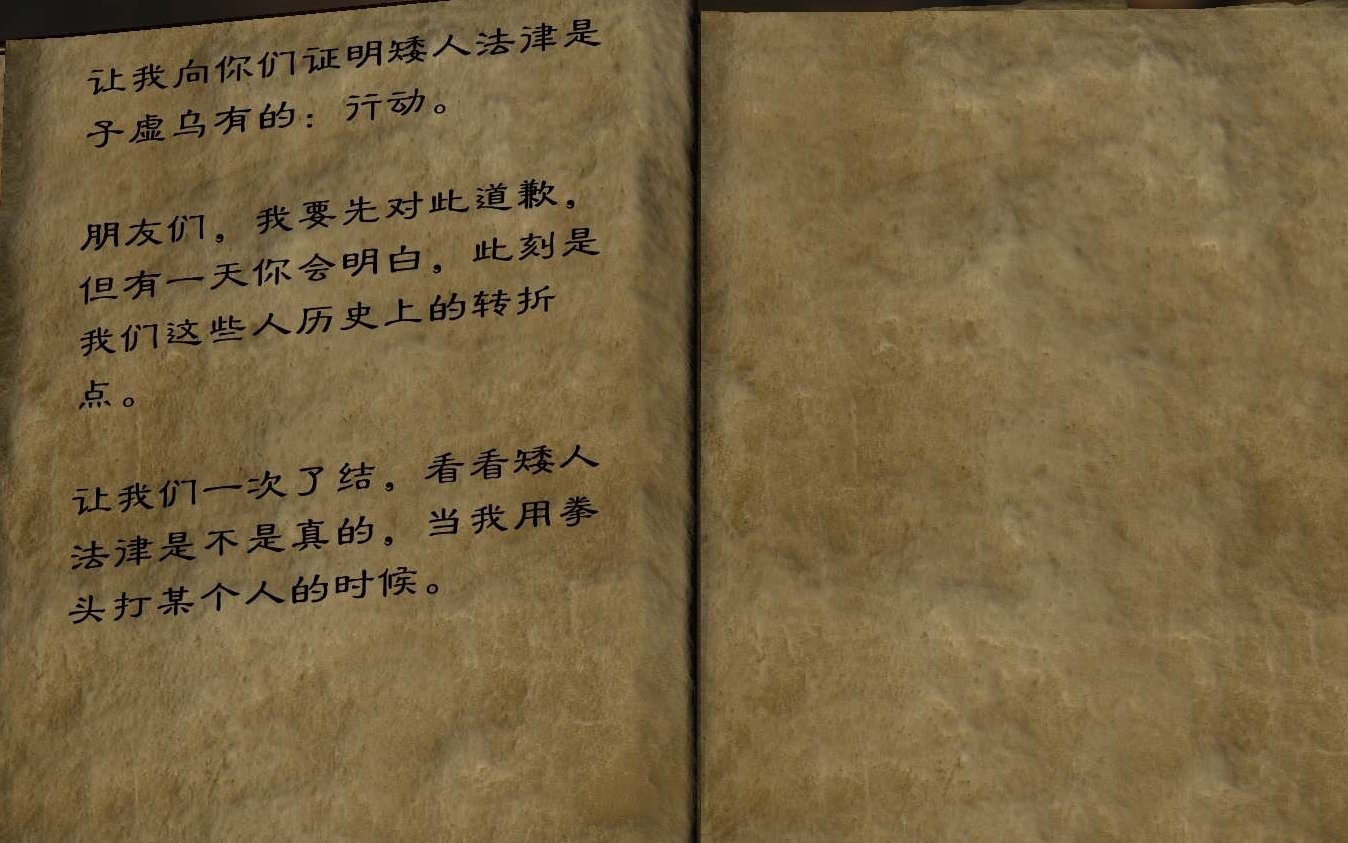 让我向你们证明矮人法律是
子虚乌有的：行动。
朋友们，我要先对此道歉，
但有一天你会明白，此刻是
我们这些人历史上的转折
点。
让我们一次了结，看看矮人
法律是不是真的，当我用拳
头打某个人的时候。